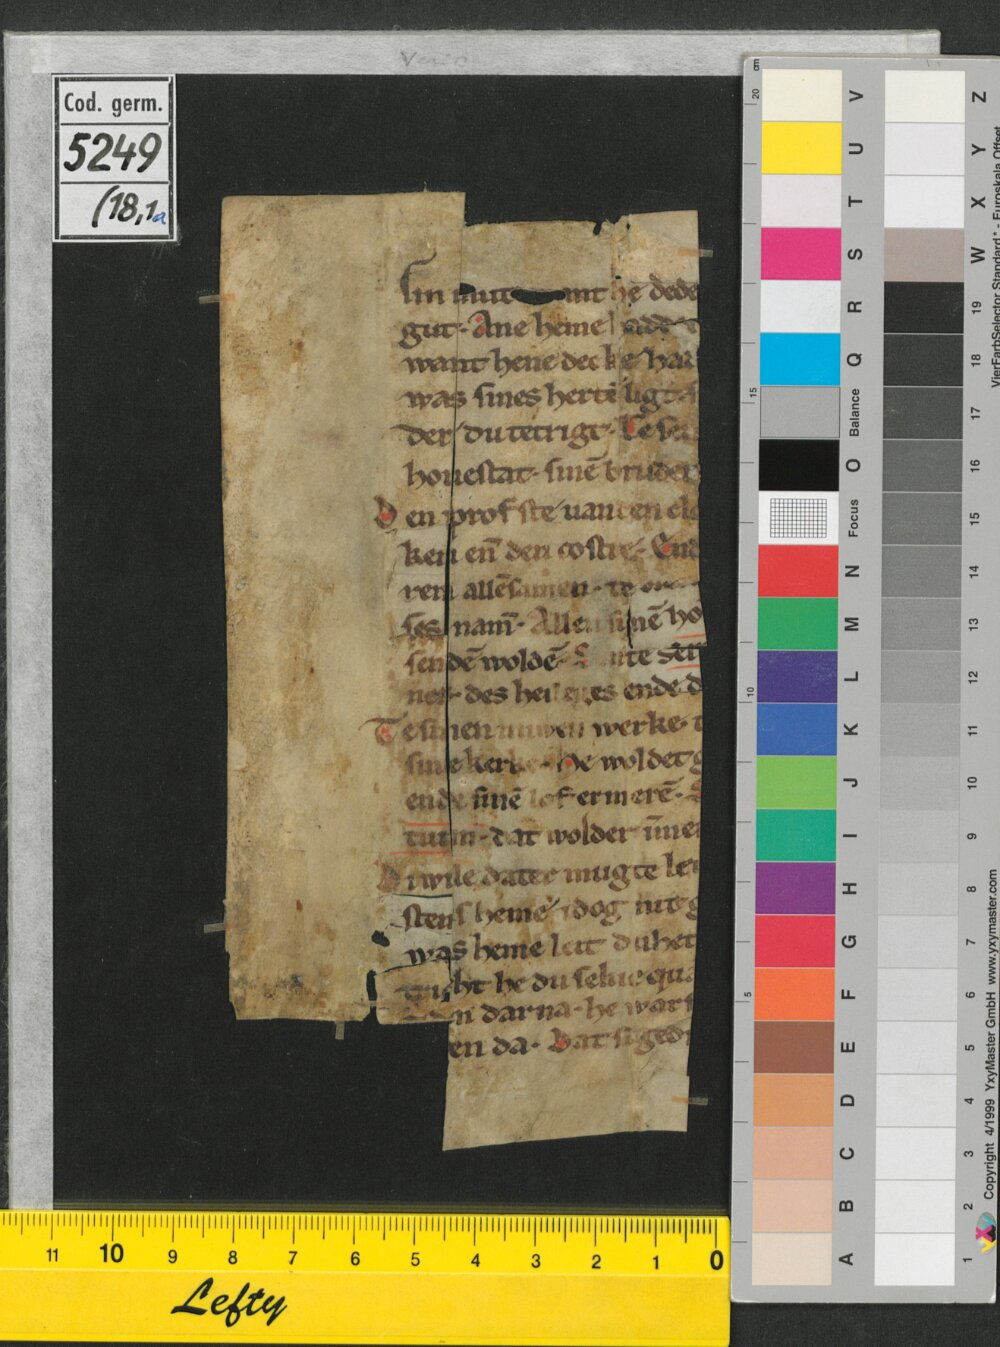 Cod. germ.
5249
(18,1a
sin mut nt he dede
gut. Ane heme
want hene decke har
was sines herte ligt.
der du tetrigt.
houestat. sinē bruder
Den profste uan den clo
ken en̄ den costre. End
ren allēsamen. te
ses nam̄. Allen sinē ho
sendē woldē.
ner. des heileges ende d
Te sinen niwen werke. t
sine kerke. He woldet g
ende sinē lof ermerē.
tum. dat wolder ūmer
Diwile dat er mugte le
stens heme idog nit g
was heme leit duhet
he du selue qua
darna. he wart
en da. Dat si ged
cm
20
15
10
5
V
U
T
S
R
Q
Balance
O
Focus
N
M
L
K
J
I
H
G
F
E
D
C
B
A
Z
Y
X
W
19
18
17
16
15
14
13
12
11
10
9
8
7
6
5
4
3
2
1
VierFarbSelector Standard* - Euroskala Offset
Copyright 4/1999 YxyMaster GmbH www.yxymaster.com
11 10 9 8 7 6 5 4 3 2 1 0
Lefty